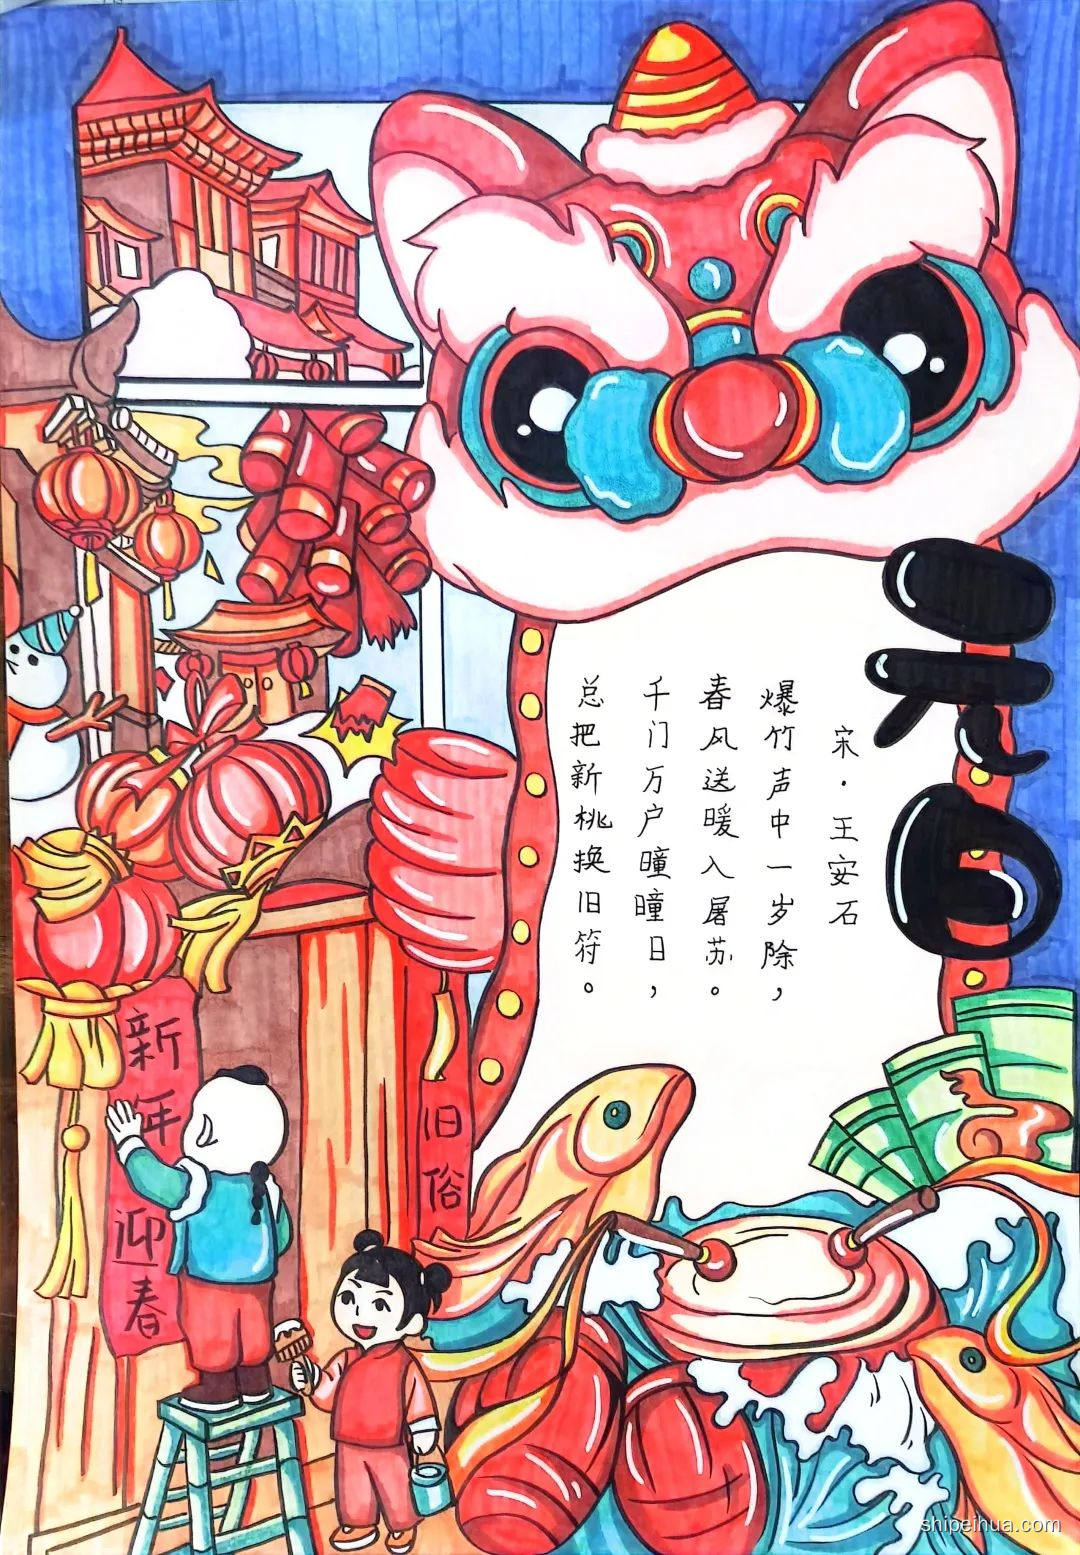 元日
宋·王安石
爆竹声中一岁除，
春风送暖入屠苏。
千门万户曈曈日，
总把新桃换旧符。
新年迎春
旧俗
shipeihua.com